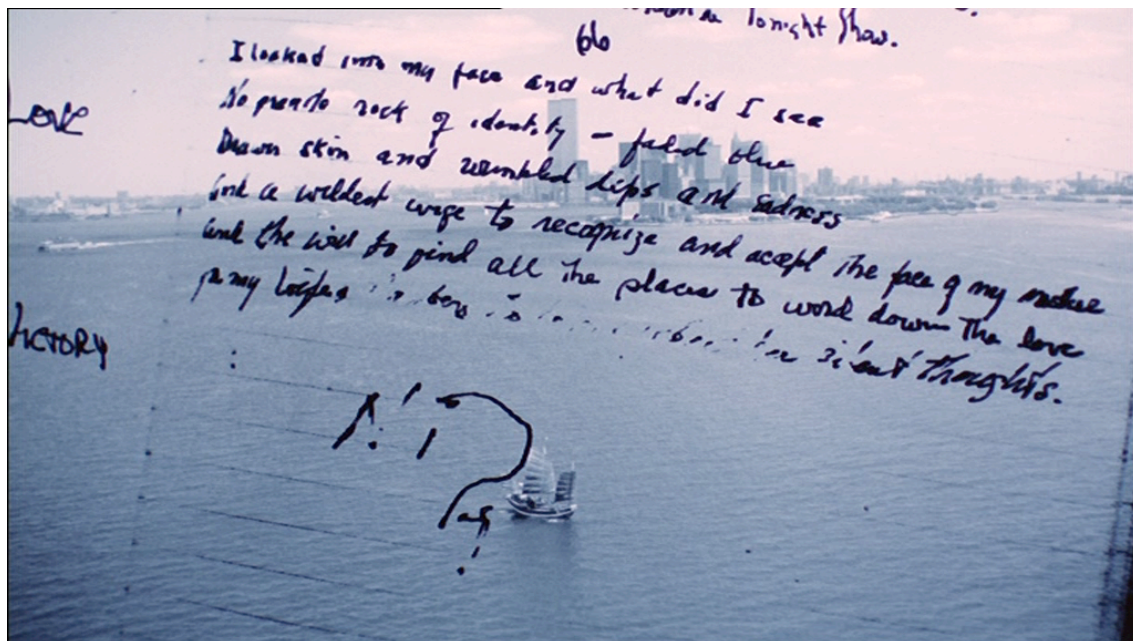 Tonight Show.
66
I looked into my face and what did I see
No rock of identity – faded blue
Drawn skin and wrinkled lips and sadness
and a wildest urge to recognize and accept the face of my mother
and the will to find all the places to word down the love
in my silent thoughts.
LOVE
VICTORY